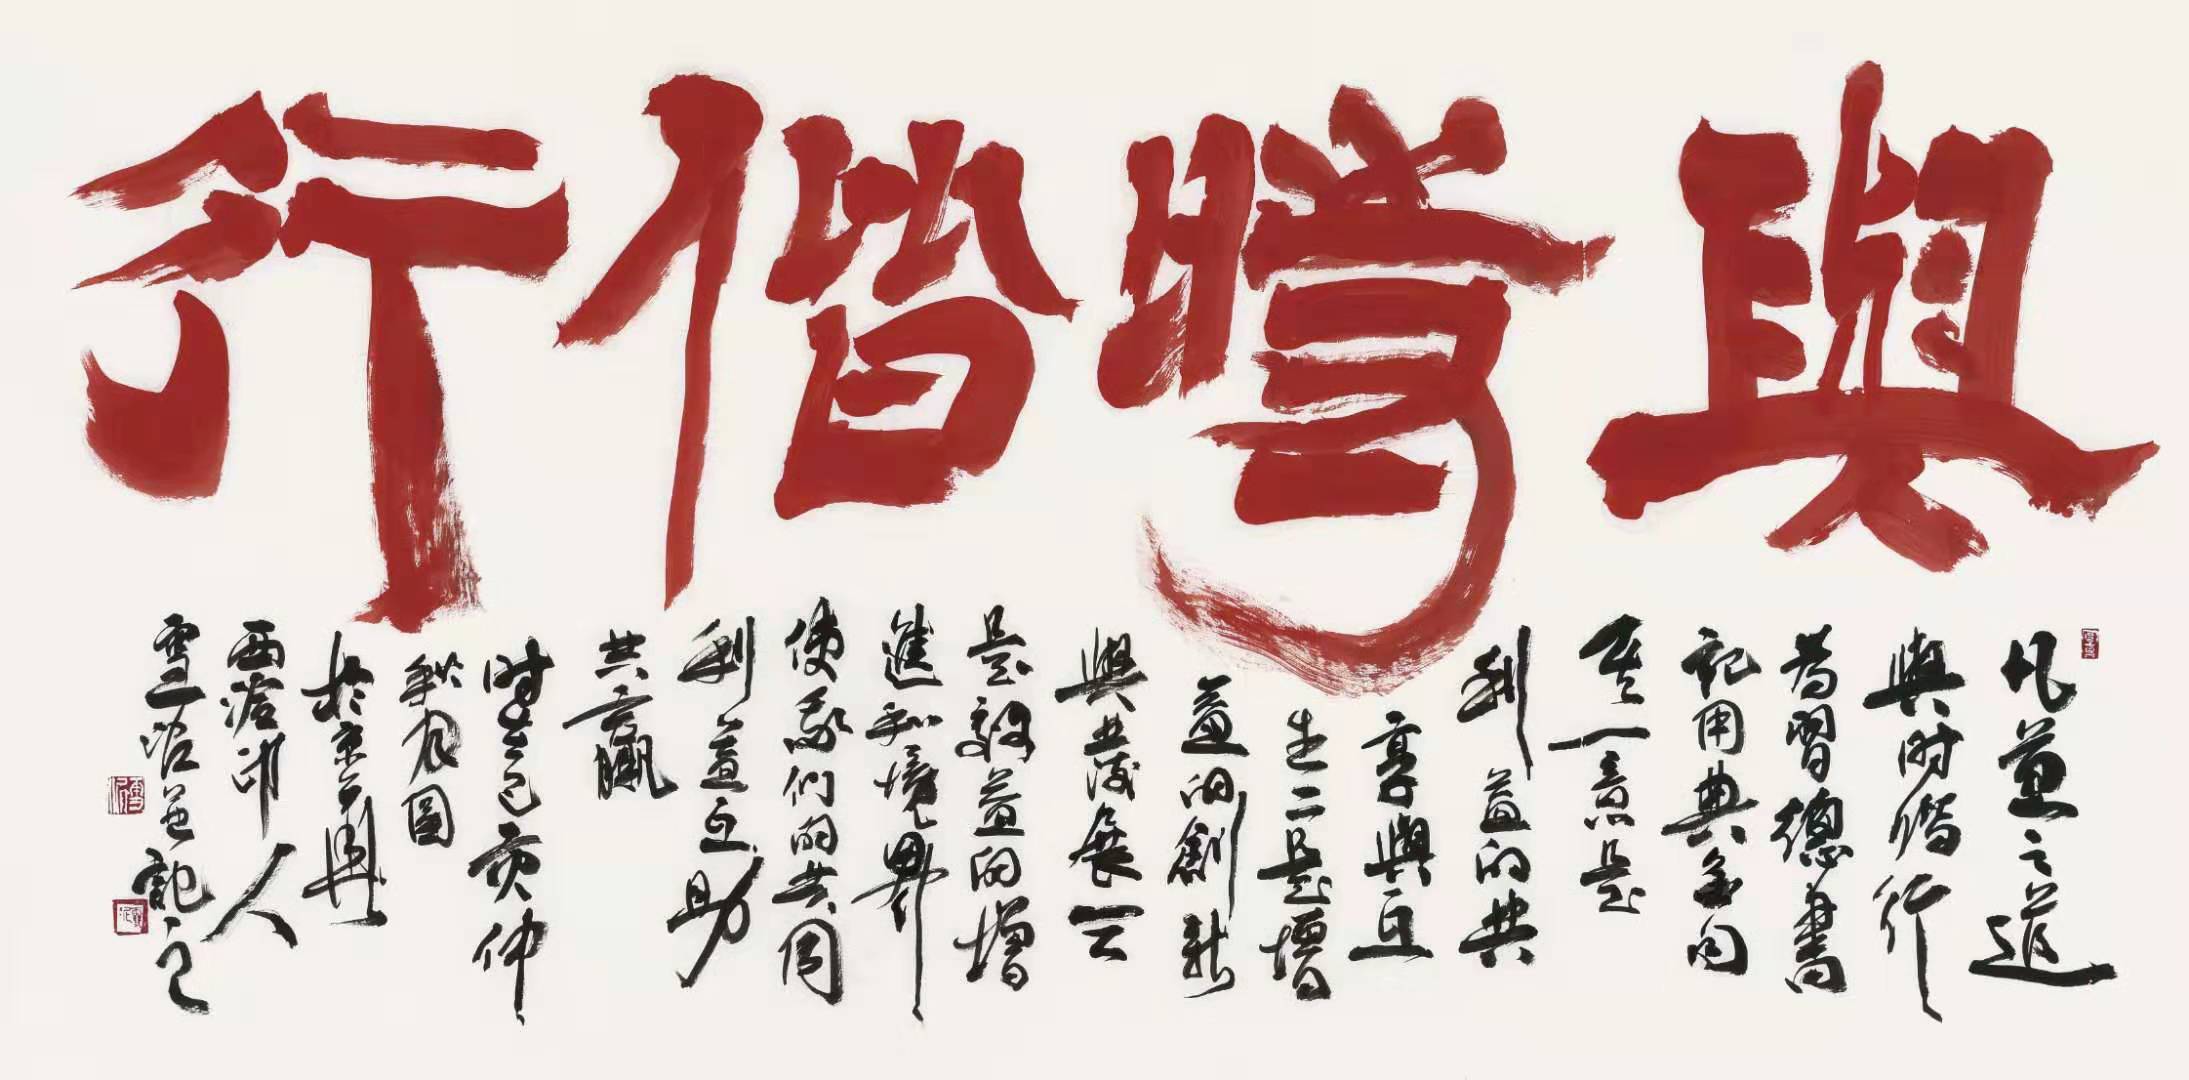 與時偕行
凡益之道
與时偕行
为習總書
記用典金句
其一意是
利益的共
享與互
生二是增
益的創新
與共發展三
是效益的增
進和境界
使我們的共同
利益互助
共贏
时己亥仲
秋月圓
於京
西沧印人
雪沧並記之